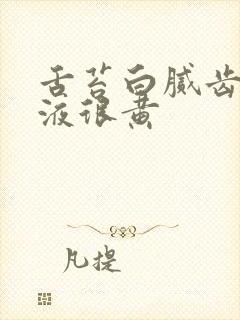 舌苔白腻齿
液很黄
凡提